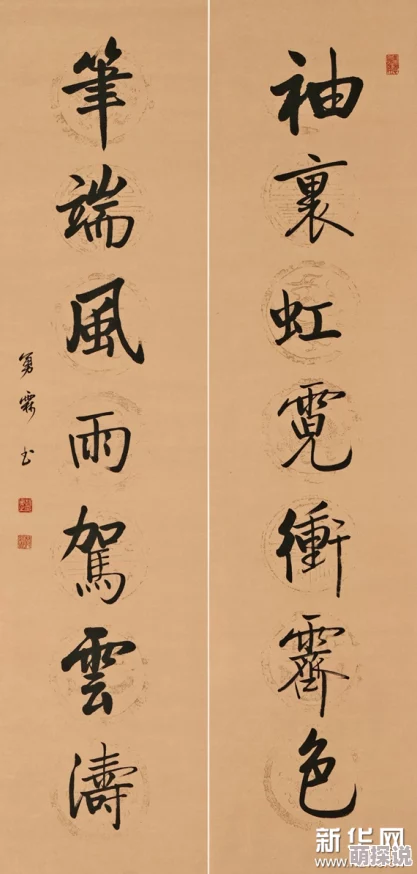 袖裏虹霓衝霽色
筆端風雨駕雲濤
勇霖书
新华网
萌探说